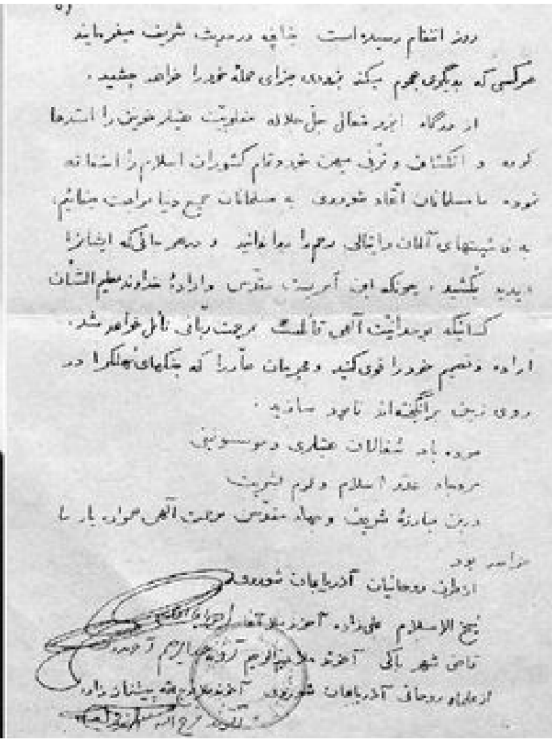 روز انتقام رسیده است چنانچه در حدیث شریف میفرماید
هر کسی که بدیگری هجوم میکند بزودی جزای حمله خود را خواهد چشید.
از درگاه ایزد متعال جل جلاله مغلوبیت هیتلر را استدعا
کرده و انکشاف و ترقی میهن خود و تمام کشورات اسلام را استغاثه
نموده ما مسلمانان اتحاد شوروی به مسلمانان جمیع دنیا مراجعت مینمائیم.
به فاشیستهای آلمان و ایتالی رحم را روا ندانید و در هر جائی که ایشانرا
دیدید بکشید. چونکه این امریست مقدس و ارادهٔ خداوند عظیم الشأن
کسانیکه بوحدانیت الهی بمرحمت ربانی نائل خواهد شد.
اراده و تصمیم خود را قوی کنید و مجریان را که جنگهای مهلک را در
روی زمین برانگیخته‌اند نابود سازید.
مرده باد شغالان هیتلری و موسولینی
مرده باد عدو اسلام و بشریت
درین مبارزهٔ شریف و جهاد مقدس مرحمت الهی یار ما
خواهد بود
از طرف روحانیان آذربایجان شوروی
شیخ الاسلام علی زاده آخوند ملا آقا
قاضی شهر باکی آخوند ملا
از علماء روحانی آذربایجان شوروی آخوند ملا پیشنماز زاده